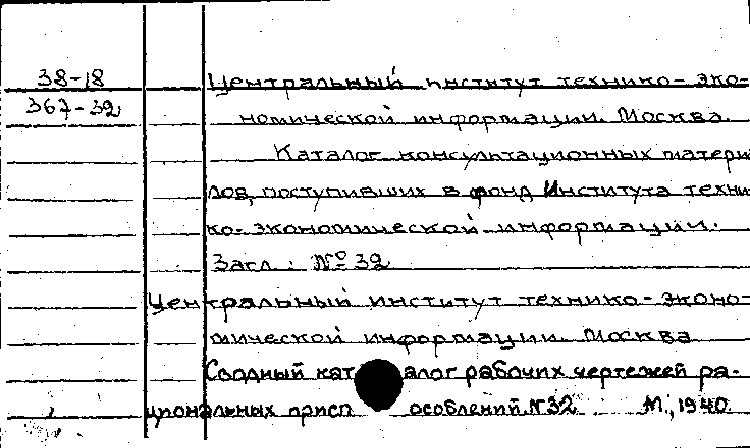 38-18 Центральный институт технико-эко-
367-32 номической информации. Москва
Каталог консультационных матери
лов, поступивших в фонд Института техни
ко-экономической информации.
Загл.: № 32
Центральный институт технико-эконо-
мической информации. Москва
Сводный каталог рабочих чертежей ра-
циональных приспособлений. №32 М., 1940